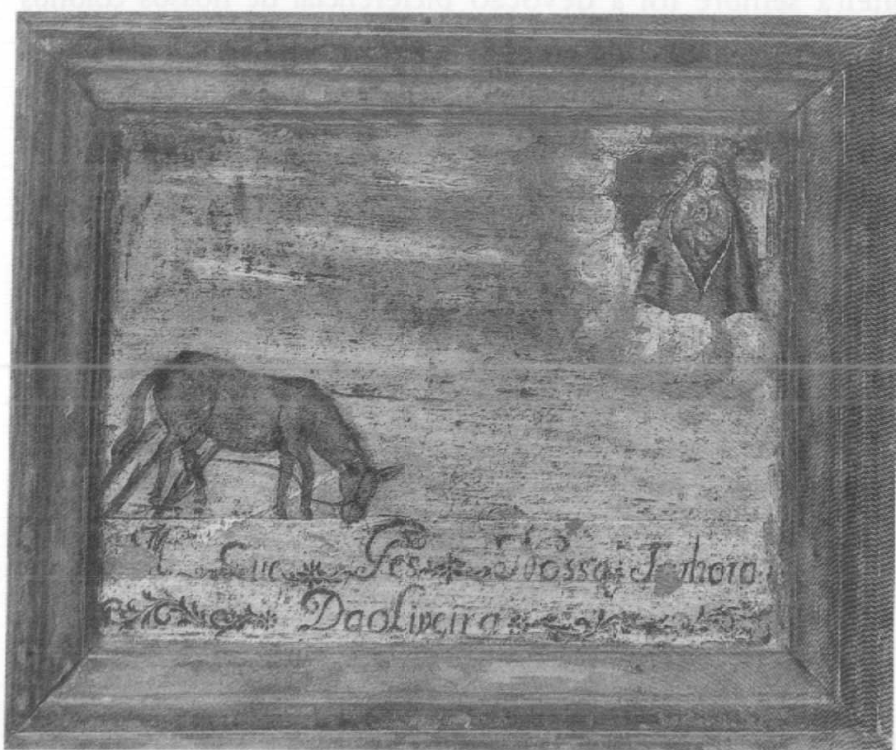 M Que Fes Nossa Senhora
Daoliveira